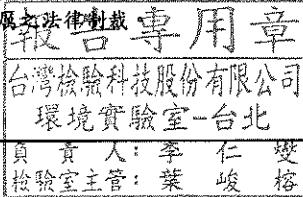 展之法律制裁
報告專用章
台灣檢驗科技股份有限公司
環境實驗室-台北
負責人：李仁燮
檢驗室主管：葉峻榕